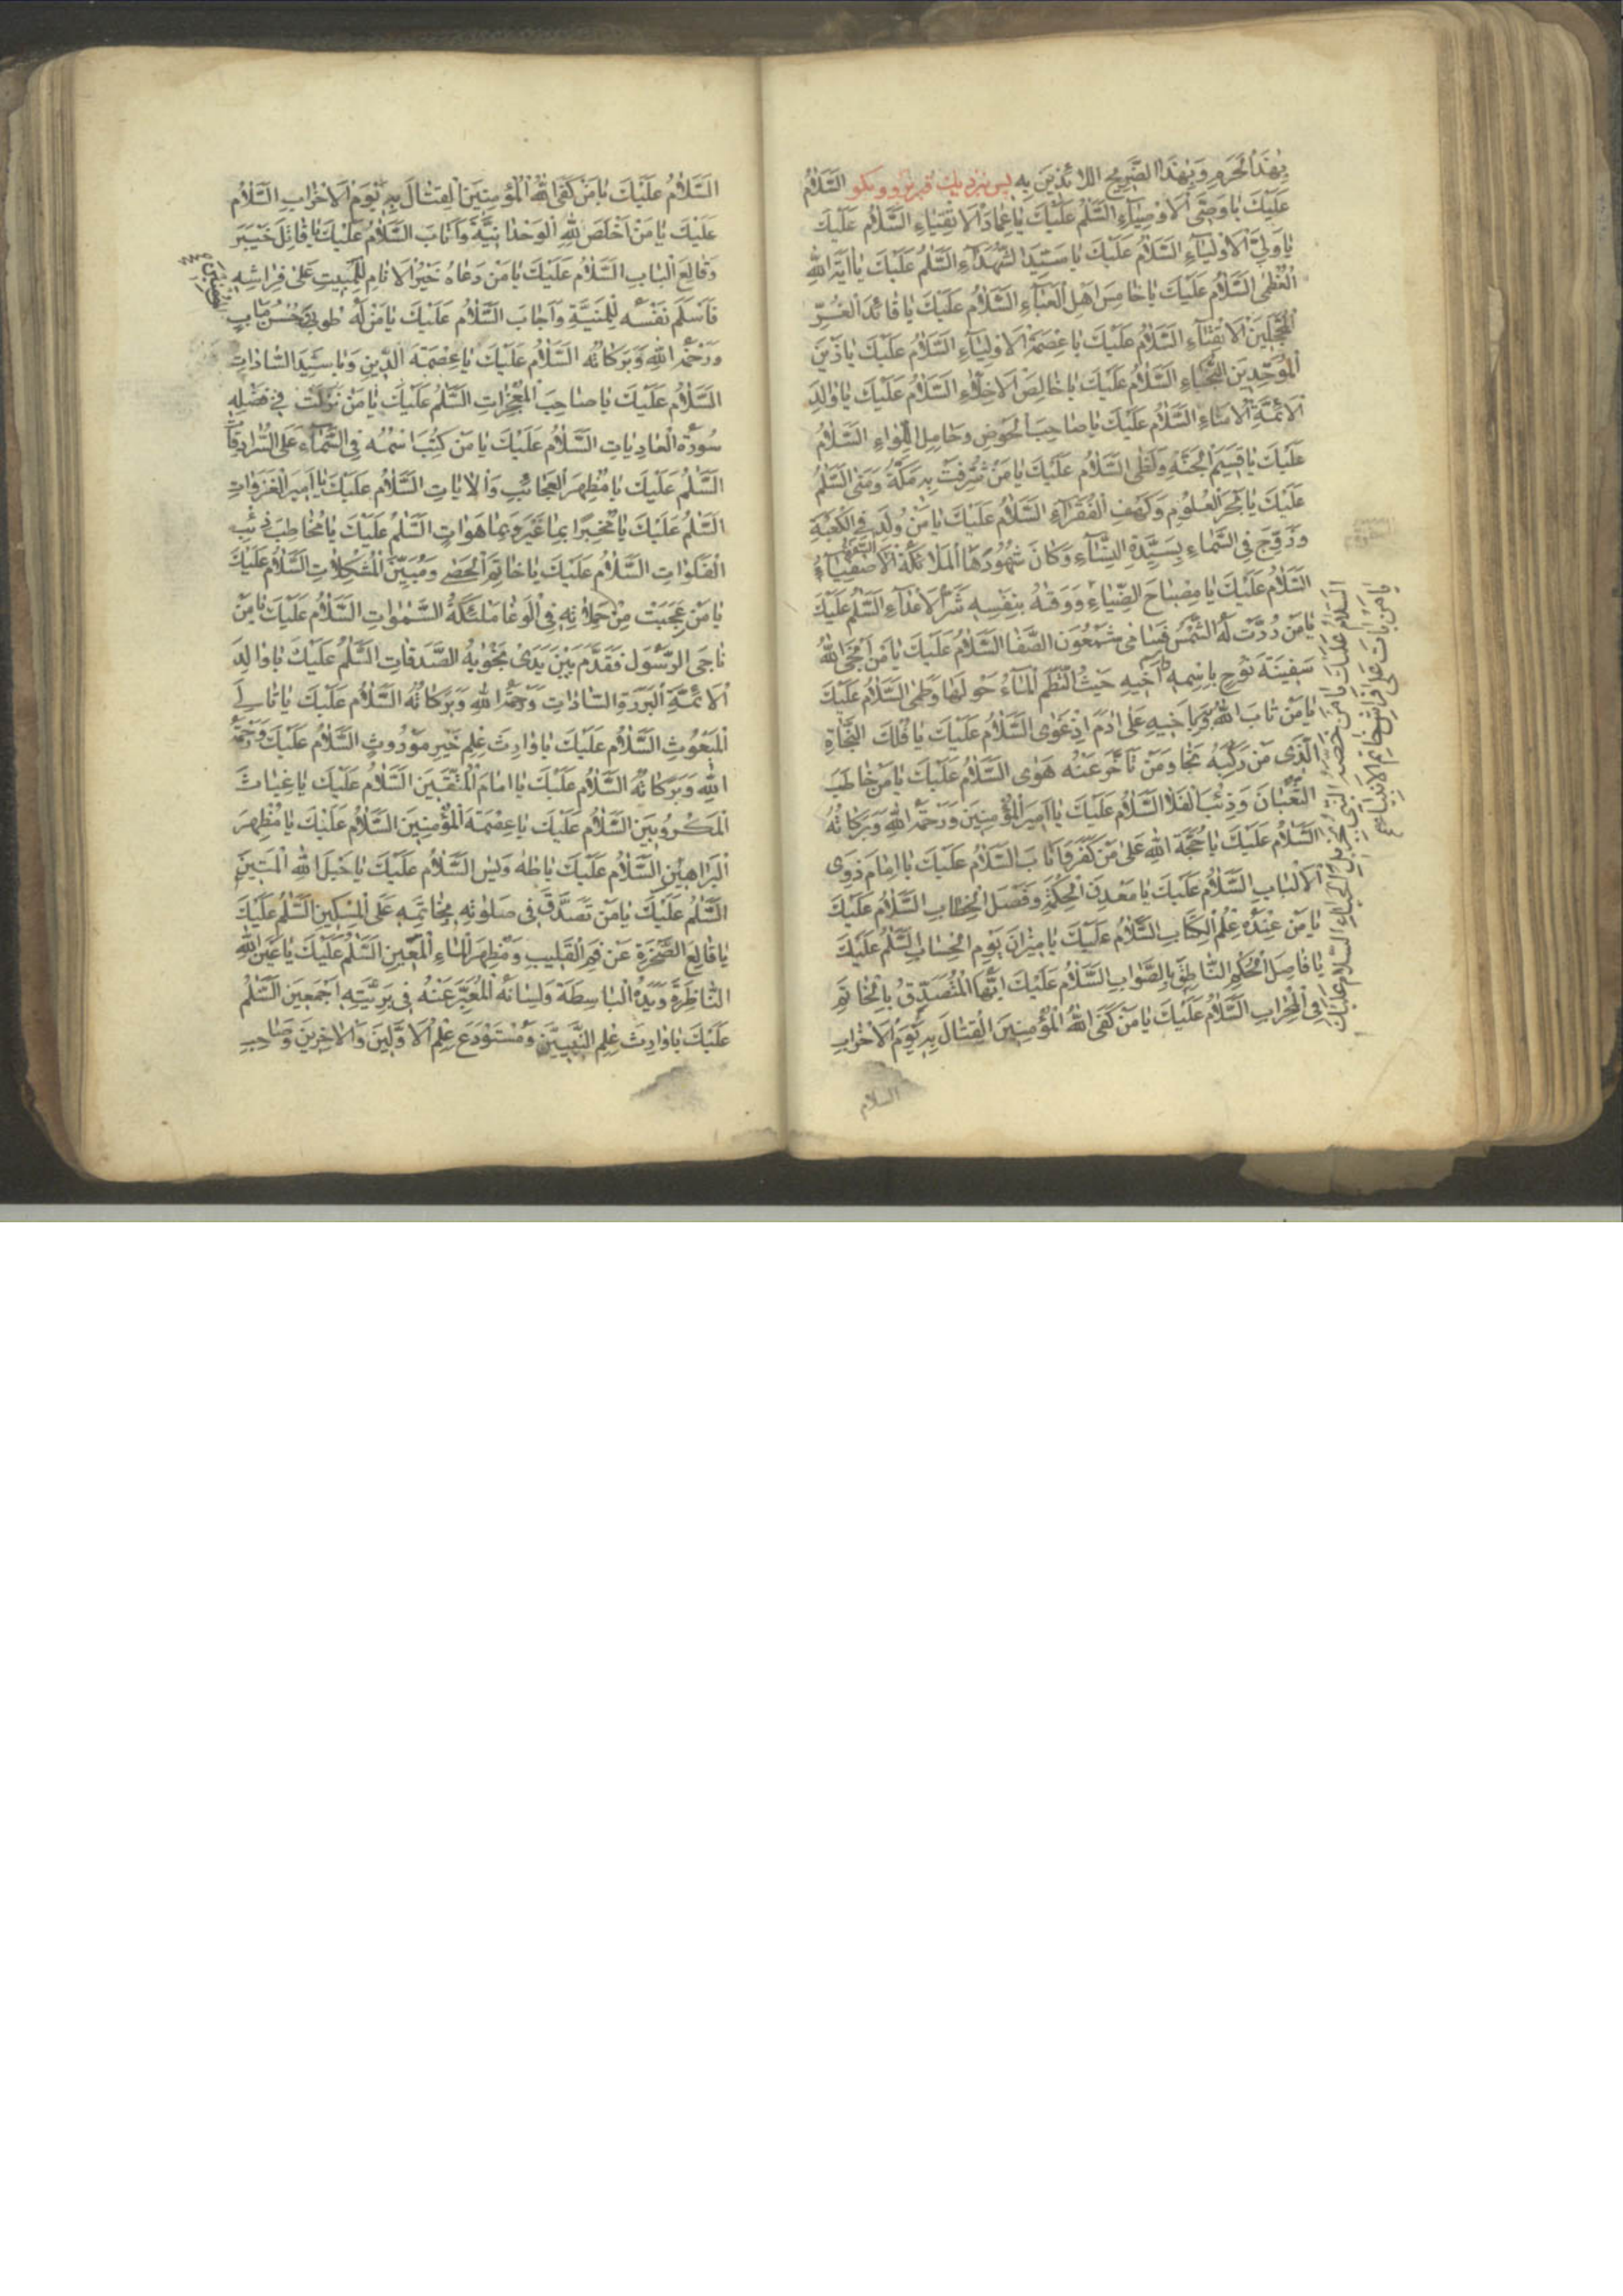 بِهٰذَا الْحَرَمِ وَبِهٰذَا الضَّرِيحِ اللّائِذِينَ بِهِ پس بنزدیک قبر برو و بگو السَّلٰامُ
عَلَيْكَ يٰا وَصِيَّ الْاَوْصِيٰاءِ السَّلٰمُ عَلَيْكَ يٰا عِمٰادَ الْاَتْقِيٰاءِ السَّلٰامُ عَلَيْكَ
يٰا وَلِيَّ الْاَوْلِيٰاءِ السَّلٰامُ عَلَيْكَ يٰا سَيِّدَ الشُّهَدٰاءِ السَّلٰمُ عَلَيْكَ يٰا اٰيَةَ اللهِ
الْعُظْمٰى السَّلٰامُ عَلَيْكَ يٰا خٰامِسَ اَهْلِ الْعَبٰاءِ السَّلٰامُ عَلَيْكَ يٰا قٰائِدَ الْغُرِّ
الْمُحَجَّلِينَ الْاَتْقِيٰاءِ السَّلٰامُ عَلَيْكَ يٰا عِصْمَةَ الْاَوْلِيٰاءِ السَّلٰامُ عَلَيْكَ يٰا زَيْنَ
الْمُوَحِّدِينَ النُّجَبٰاءِ السَّلٰامُ عَلَيْكَ يٰا خٰالِصَ الْاَخِلّٰاءِ السَّلٰامُ عَلَيْكَ يٰا وٰالِدَ
الْاَئِمَّةِ الْاُمَنٰاءِ السَّلٰامُ عَلَيْكَ يٰا صٰاحِبَ الْحَوْضِ وَحٰامِلَ اللِّوٰاءِ السَّلٰامُ
عَلَيْكَ يٰا قَسِيمَ الْجَنَّةِ وَلَظٰى السَّلٰامُ عَلَيْكَ يٰا مَنْ شُرِّفَتْ بِهِ مَكَّةُ وَمِنٰى السَّلٰمُ
عَلَيْكَ يٰا بَحْرَ الْعُلُومِ وَكَهْفَ الْفُقَرٰاءِ السَّلٰامُ عَلَيْكَ يٰا مَنْ وُلِدَ فِي الْكَعْبَةِ
وَزُوِّجَ فِي السَّمٰاءِ بِسَيِّدَةِ النِّسٰاءِ وَكٰانَ شُهُودُهَا الْمَلٰائِكَةُ الْاَصْفِيٰاءُ
السَّلٰامُ عَلَيْكَ يٰا مِصْبٰاحَ الضِّيٰاءِ وَوَقٰهُ بِنَفْسِهِ شَرَّ الْاَعْدٰاءِ السَّلٰمُ عَلَيْكَ
يٰا مَنْ رُدَّتْ لَهُ الشَّمْسُ فَسٰامٰى شَمْعُونَ الصَّفٰا السَّلٰامُ عَلَيْكَ يٰا مَنْ اَنْجَى اللهُ
سَفِينَةَ نُوحٍ بِاسْمِهِ وَاسْمِ اَخِيهِ حَيْثُ الْتَطَمَ الْمٰاءُ حَوْلَهٰا وَطَمٰى السَّلٰامُ عَلَيْكَ
يٰا مَنْ تٰابَ اللهُ بِهِ وَبِاَخِيهِ عَلٰى اٰدَمَ اِذْ غَوٰى السَّلٰامُ عَلَيْكَ يٰا فُلْكَ النَّجٰاةِ
الَّذِي مَنْ رَكِبَهُ نَجٰا وَمَنْ تَاَخَّرَ عَنْهُ هَوٰى السَّلٰامُ عَلَيْكَ يٰا مَنْ خٰاطَبَ
الثُّعْبٰانَ وَذِئْبَ الْفَلٰا السَّلٰامُ عَلَيْكَ يٰا اَمِيرَ الْمُؤْمِنِينَ وَرَحْمَةُ اللهِ وَبَرَكٰاتُهُ
السَّلٰامُ عَلَيْكَ يٰا حُجَّةَ اللهِ عَلٰى مَنْ كَفَرَ وَاَنٰابَ السَّلٰامُ عَلَيْكَ يٰا اِمٰامَ ذَوِي
الْاَلْبٰابِ السَّلٰامُ عَلَيْكَ يٰا مَعْدِنَ الْحِكْمَةِ وَفَصْلَ الْخِطٰابِ السَّلٰامُ عَلَيْكَ
يٰا مَنْ عِنْدَهُ عِلْمُ الْكِتٰابِ السَّلٰامُ عَلَيْكَ يٰا مِيزٰانَ يَوْمِ الْحِسٰابِ السَّلٰمُ عَلَيْكَ
يٰا فٰاصِلَ الْحُكْمِ النّٰاطِقَ بِالصَّوٰابِ السَّلٰامُ عَلَيْكَ اَيُّهَا الْمُتَصَدِّقُ بِالْخٰاتَمِ
فِي الْمِحْرٰابِ السَّلٰامُ عَلَيْكَ يٰا مَنْ كَفَى اللهُ الْمُؤْمِنِينَ الْقِتٰالَ بِهِ يَوْمَ الْاَحْزٰابِ
السلام
السَّلٰامُ عَلَيْكَ يٰا مَنْ خَصَّهُ النَّبِيُّ بِجَزِيلِ الْحِبٰاءِ السَّلٰامُ عَلَيْكَ
يٰا مَنْ بٰاتَ عَلٰى فِرٰاشِ خٰاتَمِ الْاَنْبِيٰاءِ
السَّلٰامُ عَلَيْكَ يٰا مَنْ كَفَى اللهُ الْمُؤْمِنِينَ الْقِتٰالَ بِهِ يَوْمَ الْاَحْزٰابِ السَّلٰامُ
عَلَيْكَ يٰا مَنْ اَخْلَصَ لِلّٰهِ الْوَحْدٰانِيَّةَ وَاَنٰابَ السَّلٰامُ عَلَيْكَ يٰا قٰاتِلَ خَيْبَرَ
وَقٰالِعَ الْبٰابِ السَّلٰامُ عَلَيْكَ يٰا مَنْ دَعٰاهُ خَيْرُ الْاَنٰامِ لِلْمَبِيتِ عَلٰى فِرٰاشِهِ
فَاَسْلَمَ نَفْسَهُ لِلْمَنِيَّةِ وَاَجٰابَ السَّلٰامُ عَلَيْكَ يٰا مَنْ لَهُ طُوبٰى وَحُسْنُ مَاٰبٍ
وَرَحْمَةُ اللهِ وَبَرَكٰاتُهُ السَّلٰامُ عَلَيْكَ يٰا عِصْمَةَ الدِّينِ وَيٰا سَيِّدَ السّٰادٰاتِ
السَّلٰامُ عَلَيْكَ يٰا صٰاحِبَ الْمُعْجِزٰاتِ السَّلٰمُ عَلَيْكَ يٰا مَنْ نَزَلَتْ فِي فَضْلِهِ
سُورَةُ الْعٰادِيٰاتِ السَّلٰامُ عَلَيْكَ يٰا مَنْ كُتِبَ اسْمُهُ فِي السَّمٰاءِ عَلَى السُّرٰادِقٰاتِ
السَّلٰمُ عَلَيْكَ يٰا مُظْهِرَ الْعَجٰائِبِ وَالْاٰيٰاتِ السَّلٰامُ عَلَيْكَ يٰا اَمِيرَ الْغَزَوٰاتِ
السَّلٰمُ عَلَيْكَ يٰا مُخْبِرًا بِمٰا غَبَرَ وَبِمٰا هُوَ اٰتٍ السَّلٰمُ عَلَيْكَ يٰا مُخٰاطِبَ ذِئْبِ
الْفَلَوٰاتِ السَّلٰامُ عَلَيْكَ يٰا خٰاتِمَ الْحَصٰى وَمُبَيِّنَ الْمُشْكِلٰاتِ السَّلٰامُ عَلَيْكَ
يٰا مَنْ عَجِبَتْ مِنْ حَمَلٰاتِهِ فِي الْوَغٰا مَلٰئِكَةُ السَّمٰوٰاتِ السَّلٰامُ عَلَيْكَ يٰا مَنْ
نٰاجَى الرَّسُولَ فَقَدَّمَ بَيْنَ يَدَيْ نَجْوٰيهُ الصَّدَقٰاتِ السَّلٰمُ عَلَيْكَ يٰا وٰالِدَ
الْاَئِمَّةِ الْبَرَرَةِ السّٰادٰاتِ وَرَحْمَةُ اللهِ وَبَرَكٰاتُهُ السَّلٰامُ عَلَيْكَ يٰا تٰالِيَ
الْمَبْعُوثِ السَّلٰامُ عَلَيْكَ يٰا وٰارِثَ عِلْمِ خَيْرِ مَوْرُوثٍ السَّلٰامُ عَلَيْكَ وَرَحْمَةُ
اللهِ وَبَرَكٰاتُهُ السَّلٰامُ عَلَيْكَ يٰا اِمٰامَ الْمُتَّقِينَ السَّلٰامُ عَلَيْكَ يٰا غِيٰاثَ
الْمَكْرُوبِينَ السَّلٰامُ عَلَيْكَ يٰا عِصْمَةَ الْمُؤْمِنِينَ السَّلٰامُ عَلَيْكَ يٰا مُظْهِرَ
الْبَرٰاهِينِ السَّلٰامُ عَلَيْكَ يٰا طٰهٰ وَيٰس السَّلٰامُ عَلَيْكَ يٰا حَبْلَ اللهِ الْمَتِينَ
السَّلٰمُ عَلَيْكَ يٰا مَنْ تَصَدَّقَ فِي صَلٰوتِهِ بِخٰاتَمِهِ عَلَى الْمِسْكِينِ السَّلٰمُ عَلَيْكَ
يٰا قٰالِعَ الصَّخْرَةِ عَنْ فَمِ الْقَلِيبِ وَمُظْهِرَ الْمٰاءِ الْمَعِينِ السَّلٰمُ عَلَيْكَ يٰا عَيْنَ اللهِ
النّٰاظِرَةَ وَيَدَهُ الْبٰاسِطَةَ وَلِسٰانَهُ الْمُعَبِّرَ عَنْهُ فِي بَرِيَّتِهِ اَجْمَعِينَ السَّلٰمُ
عَلَيْكَ يٰا وٰارِثَ عِلْمِ النَّبِيِّينَ وَمُسْتَوْدَعَ عِلْمِ الْاَوَّلِينَ وَالْاٰخِرِينَ وَصٰاحِبَ